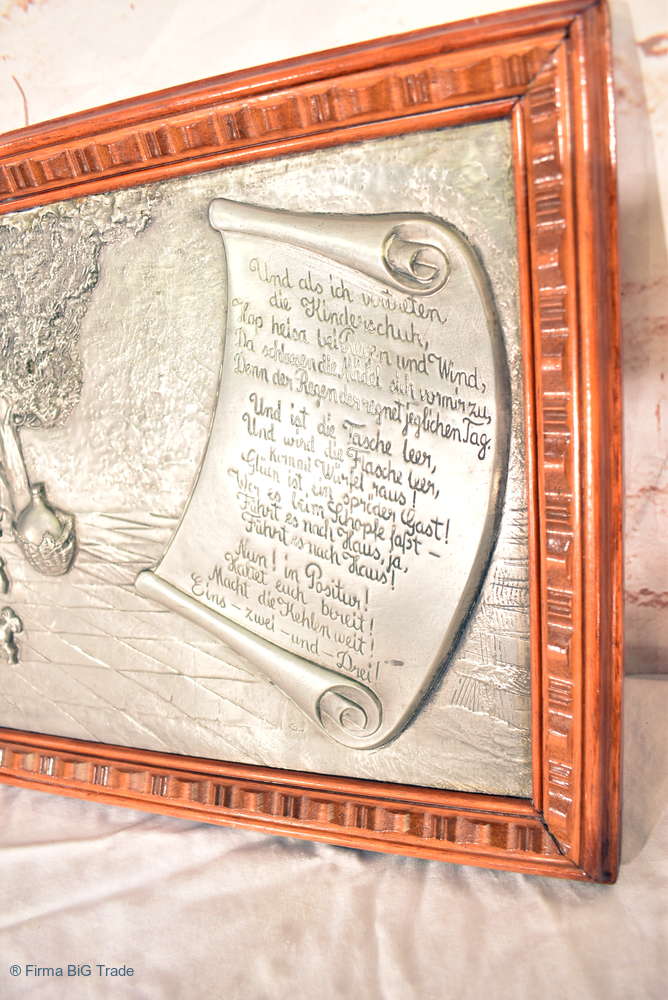 Und als ich vertreten
die Kinderschuh,
Hop heisa bei Regen und Wind,
Da schlossen die Mädel sich vor mir zu,
Denn der Regen der regnet jeglichen Tag.
Und ist die Tasche leer,
Und wird die Flasche leer,
Kommt Würfel raus!
Glück ist ein spröder Gast!
Wer es beim Schopfe faßt –
Führt es nach Haus, ja,
Führt es nach Haus!
Nun! in Positur!
Haltet euch bereit!
Macht die Kehlen weit!
Eins – zwei – und – Drei!
® Firma BiG Trade